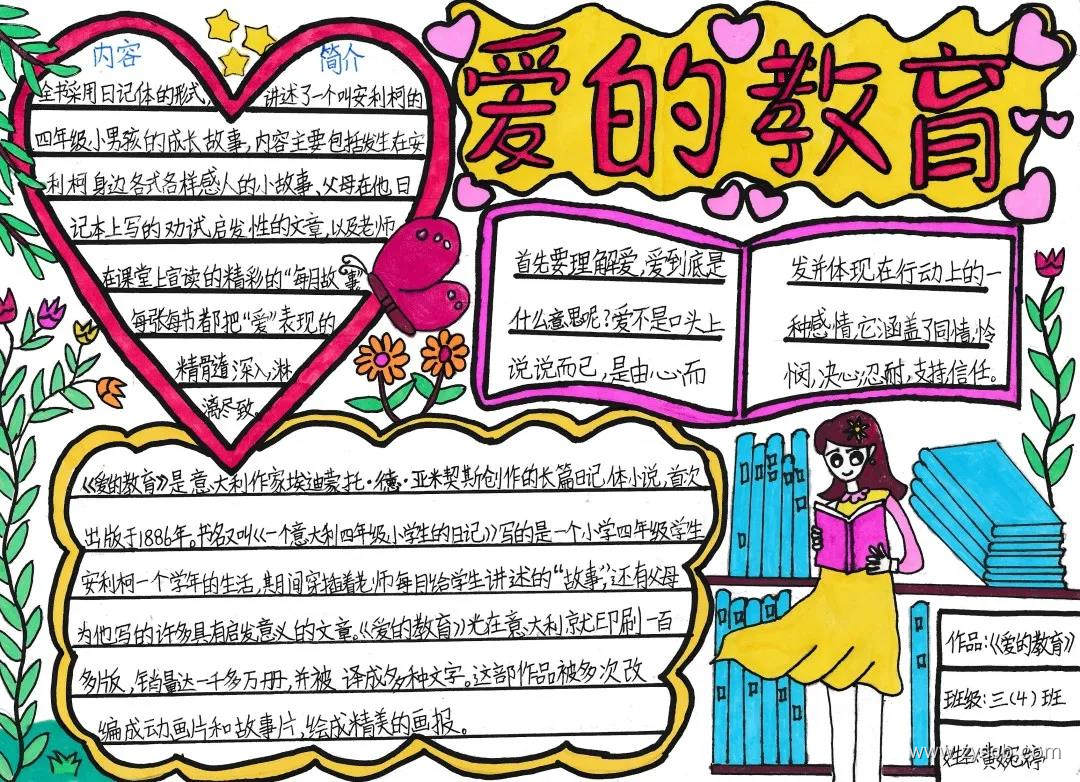 爱的教育
内容 简介
全书采用日记体的形式，讲述了一个叫安利柯的
四年级小男孩的成长故事，内容主要包括发生在安
利柯身边各式各样感人的小故事、父母在他日
记本上写的劝试启发性的文章，以及老师
在课堂上宣读的精彩的“每月故事”
每张每节都把“爱”表现的
精骨髓深入，淋
漓尽致。
首先要理解爱，爱到底是
什么意思呢？爱不是口头上
说说而已，是由心而
发并体现在行动上的一
种感情，它涵盖了同情，怜
悯，决心忍耐，支持信任。
《爱的教育》是意大利作家埃迪蒙托·德·亚米契斯创作的长篇日记体小说，首次
出版于1886年。书名又叫《一个意大利四年级小学生的日记》写的是一个小学四年级学生
安利柯一个学年的生活，期间穿插着老师每月给学生讲述的“故事”，还有父母
为他写的许多具有启发意义的文章。《爱的教育》光在意大利就印刷一百
多版，销量达一千多万册，并被译成多种文字。这部作品被多次改
编成动画片和故事片，绘成精美的画报。
作品：《爱的教育》
班级：三（4）班
姓名：黄